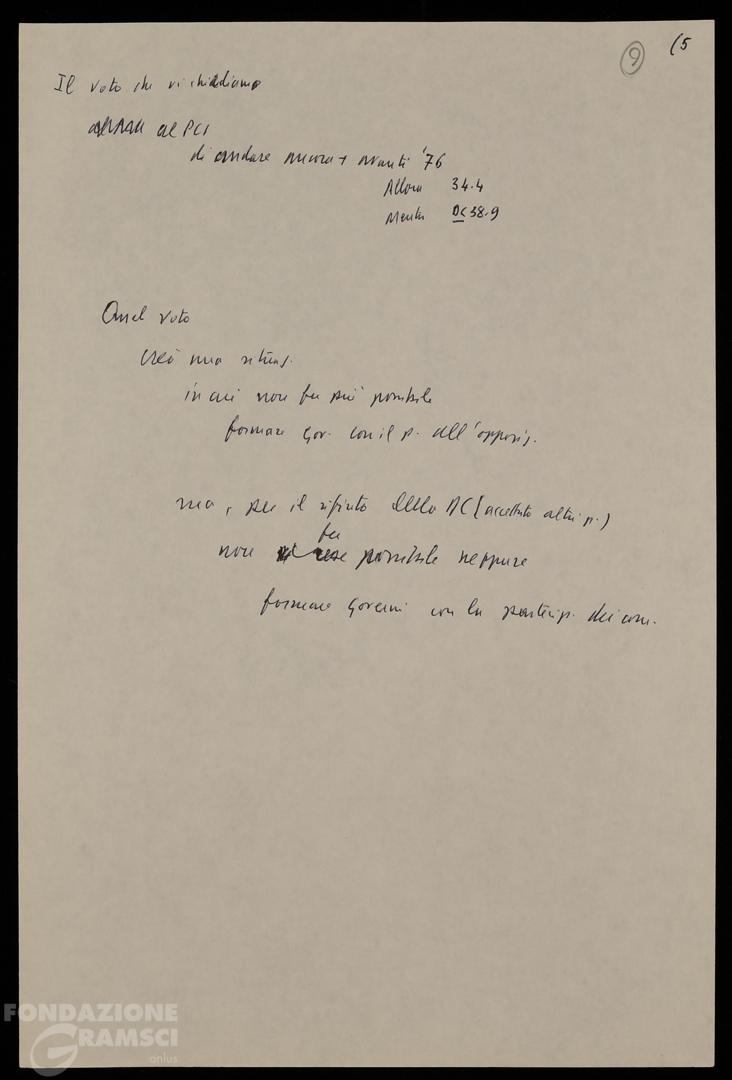 9 (5
Il voto che vi chiediamo
al PCI
di andare ancora + avanti '76
Allora 34.4
Mentre DC 38.9
Quel voto
creò una situaz.
in cui non fu più possibile
formare gov. con il p. all'opposiz.
ma, per il rifiuto della DC (accettato altri p.)
fu
non possibile neppure
formare Governi con la partecip. dei com.
FONDAZIONE
GRAMSCI
onlus